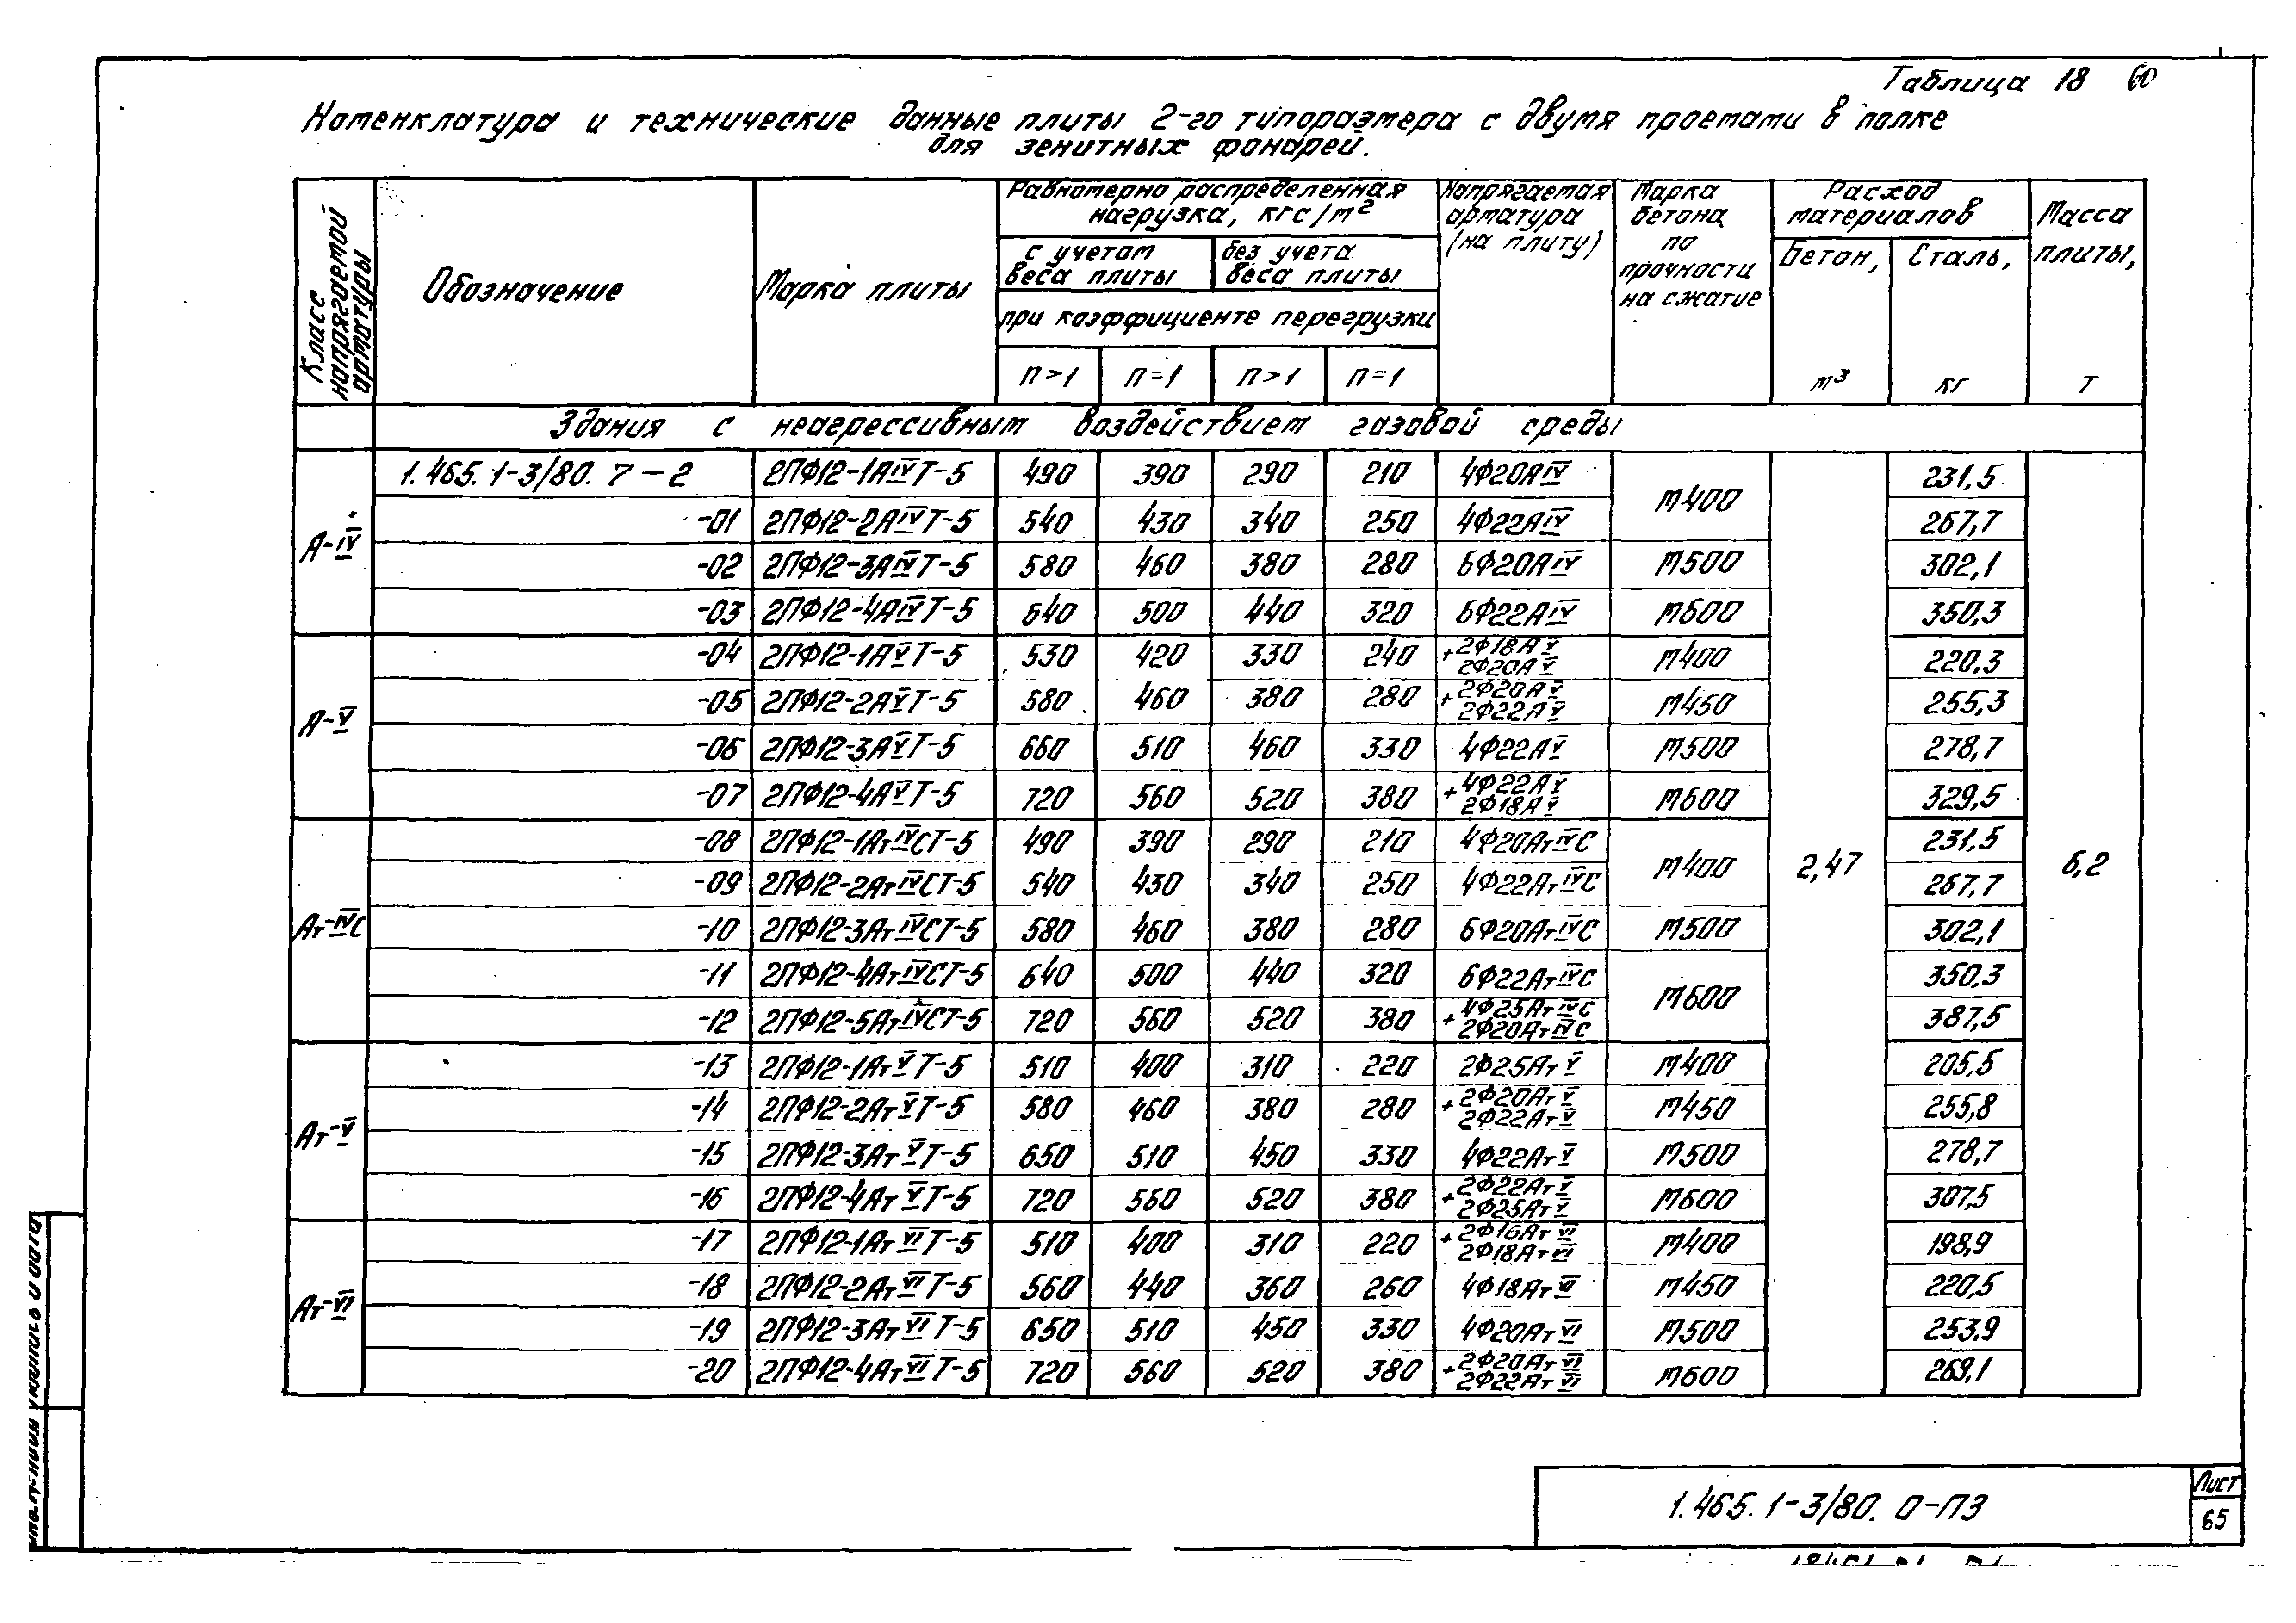 Таблица 18 60
Номенклатура и технические данные плиты 2-го типоразмера с двумя проемами в полке
для зенитных фонарей.
Класс напрягаемой арматуры
Обозначение
Марка плиты
Равномерно распределенная нагрузка, кгс/м²
с учетом веса плиты
без учета веса плиты
при коэффициенте перегрузки
п>1 п=1 п>1 п=1
Напрягаемая арматура (на плиту)
Марка бетона по прочности на сжатие
Расход материалов
Бетон, м³
Сталь, кг
Масса плиты, т
Здания с неагрессивным воздействием газовой среды
А-IV
1.465.1-3/80. 7 – 2 2ПФ12-1АIVТ-5 490 390 290 210 4Ф20АIV М400 231,5
-01 2ПФ12-2АIVТ-5 540 430 340 250 4Ф22АIV 267,7
-02 2ПФ12-3АIVТ-5 580 460 380 280 6Ф20АIV М500 302,1
-03 2ПФ12-4АIVТ-5 640 500 440 320 6Ф22АIV М600 350,3
А-V
-04 2ПФ12-1АVТ-5 530 420 330 240 2Ф18АV + 2Ф20АV М400 220,3
-05 2ПФ12-2АVТ-5 580 460 380 280 2Ф20АV + 2Ф22АV М450 255,3
-06 2ПФ12-3АVТ-5 660 510 460 330 4Ф22АV М500 278,7
-07 2ПФ12-4АVТ-5 720 560 520 380 4Ф22АV + 2Ф18АV М600 329,5
Ат-IVС
-08 2ПФ12-1АтIVСТ-5 490 390 290 210 4Ф20АтIVС М400 2,47 231,5 6,2
-09 2ПФ12-2АтIVСТ-5 540 430 340 250 4Ф22АтIVС 267,7
-10 2ПФ12-3АтIVСТ-5 580 460 380 280 6Ф20АтIVС М500 302,1
-11 2ПФ12-4АтIVСТ-5 640 500 440 320 6Ф22АтIVС М600 350,3
-12 2ПФ12-5АтIVСТ-5 720 560 520 380 4Ф25АтIVС + 2Ф20АтIVС 387,5
Ат-V
-13 2ПФ12-1АтVТ-5 510 400 310 220 2Ф25АтV М400 205,5
-14 2ПФ12-2АтVТ-5 580 460 380 280 2Ф20АтV + 2Ф22АтV М450 255,8
-15 2ПФ12-3АтVТ-5 650 510 450 330 4Ф22АтV М500 278,7
-16 2ПФ12-4АтVТ-5 720 560 520 380 2Ф22АтV + 2Ф25АтV М600 307,5
Ат-VI
-17 2ПФ12-1АтVIТ-5 510 400 310 220 2Ф16АтVI + 2Ф18АтVI М400 198,9
-18 2ПФ12-2АтVIТ-5 560 440 360 260 4Ф18АтVI М450 220,5
-19 2ПФ12-3АтVIТ-5 650 510 450 330 4Ф20АтVI М500 253,9
-20 2ПФ12-4АтVIТ-5 720 560 520 380 2Ф20АтVI + 2Ф22АтVI М600 269,1
1.465.1-3/80. 0-ПЗ
Лист
65